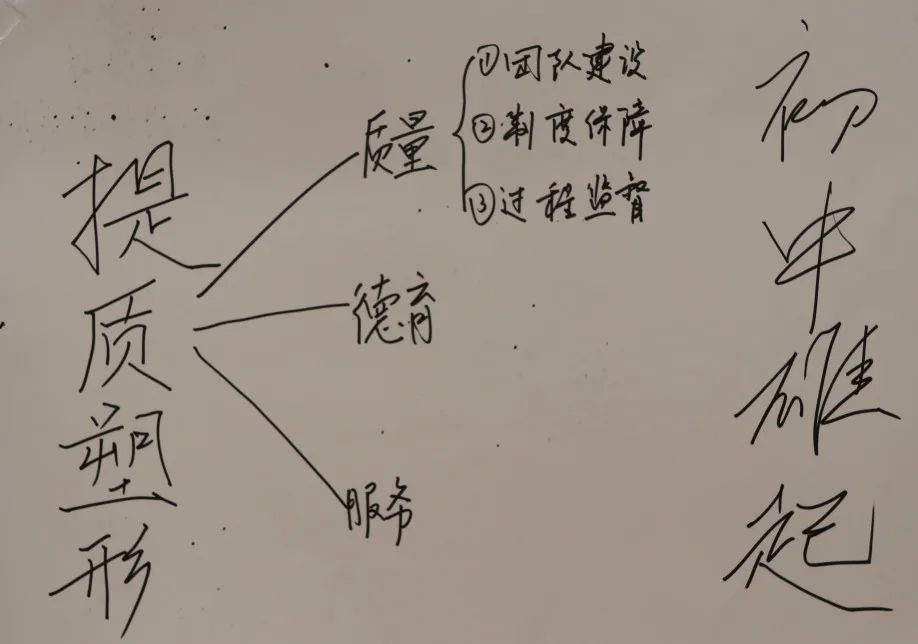 提质塑形
质量
①团队建设
②制度保障
③过程监督
德育
服务
初中雄起